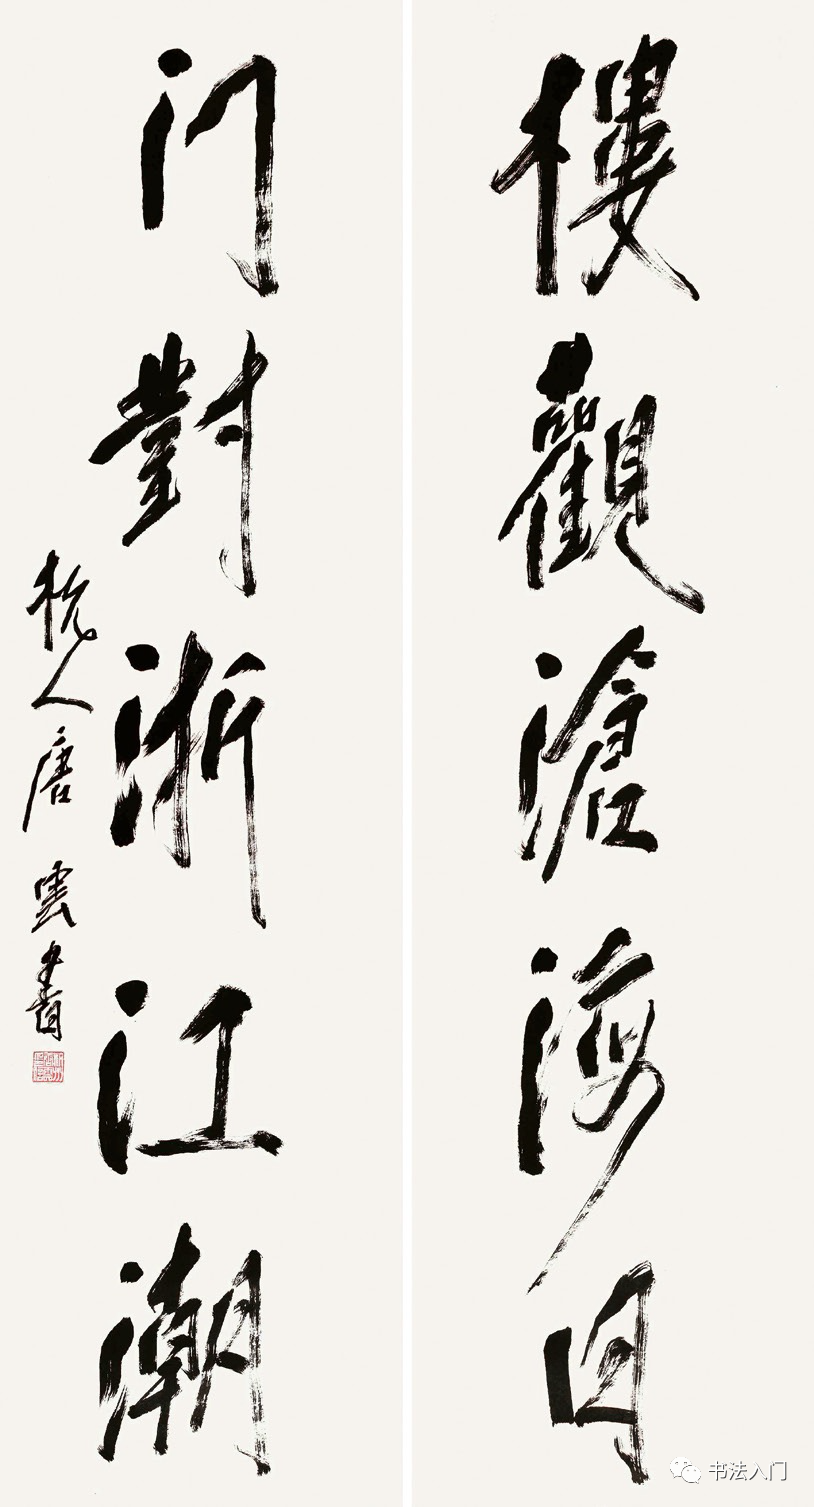 樓觀滄海日
门對浙江潮
杭人唐雲書
书法入门